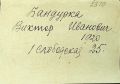 Бандурка
Виктор Иванович
1920
1 Слободская 25.